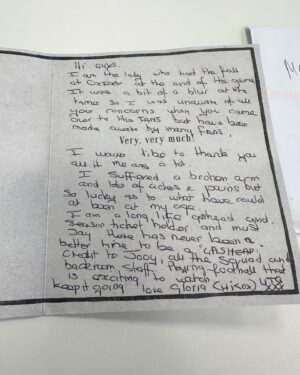 Hi guys.
I am the lady who had the fall
at Oxford at the end of the game
It was a bit of a blur at the
time so I was unaware of all
your concerns when you came
over to the FANS but have been
made aware by many Fans.
Very, very much!
I would like to thank you
all it means a lot.
I suffered a broken arm
and lots of aches & pains but
so lucky as to what have could
at been at my age.
I am a long life gashead and
season ticket holder and must
say there has never been a
better time to be a "GASHEAD".
Credit to Joey, all the squad and
backroom staff. Playing football that
is exciting to watch UTG
keep it going love Gloria (Hiscox) XXX